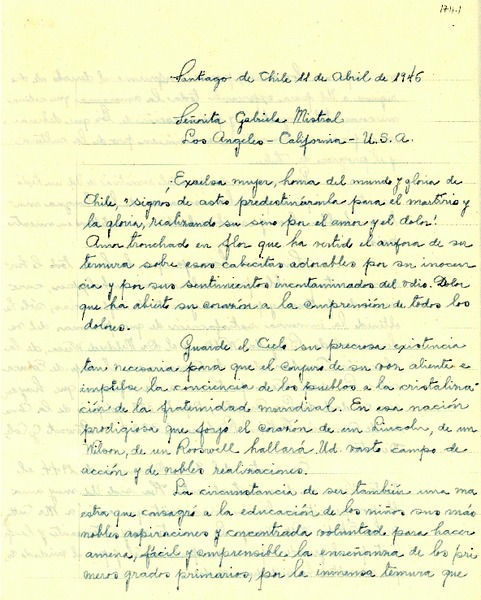 1741-1
Santiago de Chile 11 de Abril de 1946
Señorita Gabriela Mistral
Los Angeles - California - U.S.A.
¡Excelsa mujer, honra del mundo y gloria de
Chile, signos de astro predestináronla para el martirio y
la gloria, realizando su sino por el amor y el dolor!
Amor tronchado en flor que ha vertido el ánfora de su
ternura sobre esas cabecitas adorables por su inocen
cia y por sus sentimientos incontaminados del odio. Dolor
que ha abierto su corazón a la comprensión de todos los
dolores.
Guarde el Cielo su preciosa existencia
tan necesaria para que el conjuro de su voz aliente e
impulse la conciencia de los pueblos a la cristaliza
ción de la fraternidad mundial. En esa nación
prodigiosa que forjó el corazón de un Lincoln, de un
Wilson, de un Roosvell hallará Ud. vasto campo de
acción y de nobles realizaciones.
La circunstancia de ser también una ma
estra que consagró a la educación de los niños sus más
nobles aspiraciones y concentrada voluntad para hacer
amena, fácil y comprensible la enseñanza de los pri
meros grados primarios, por la inmensa ternura que